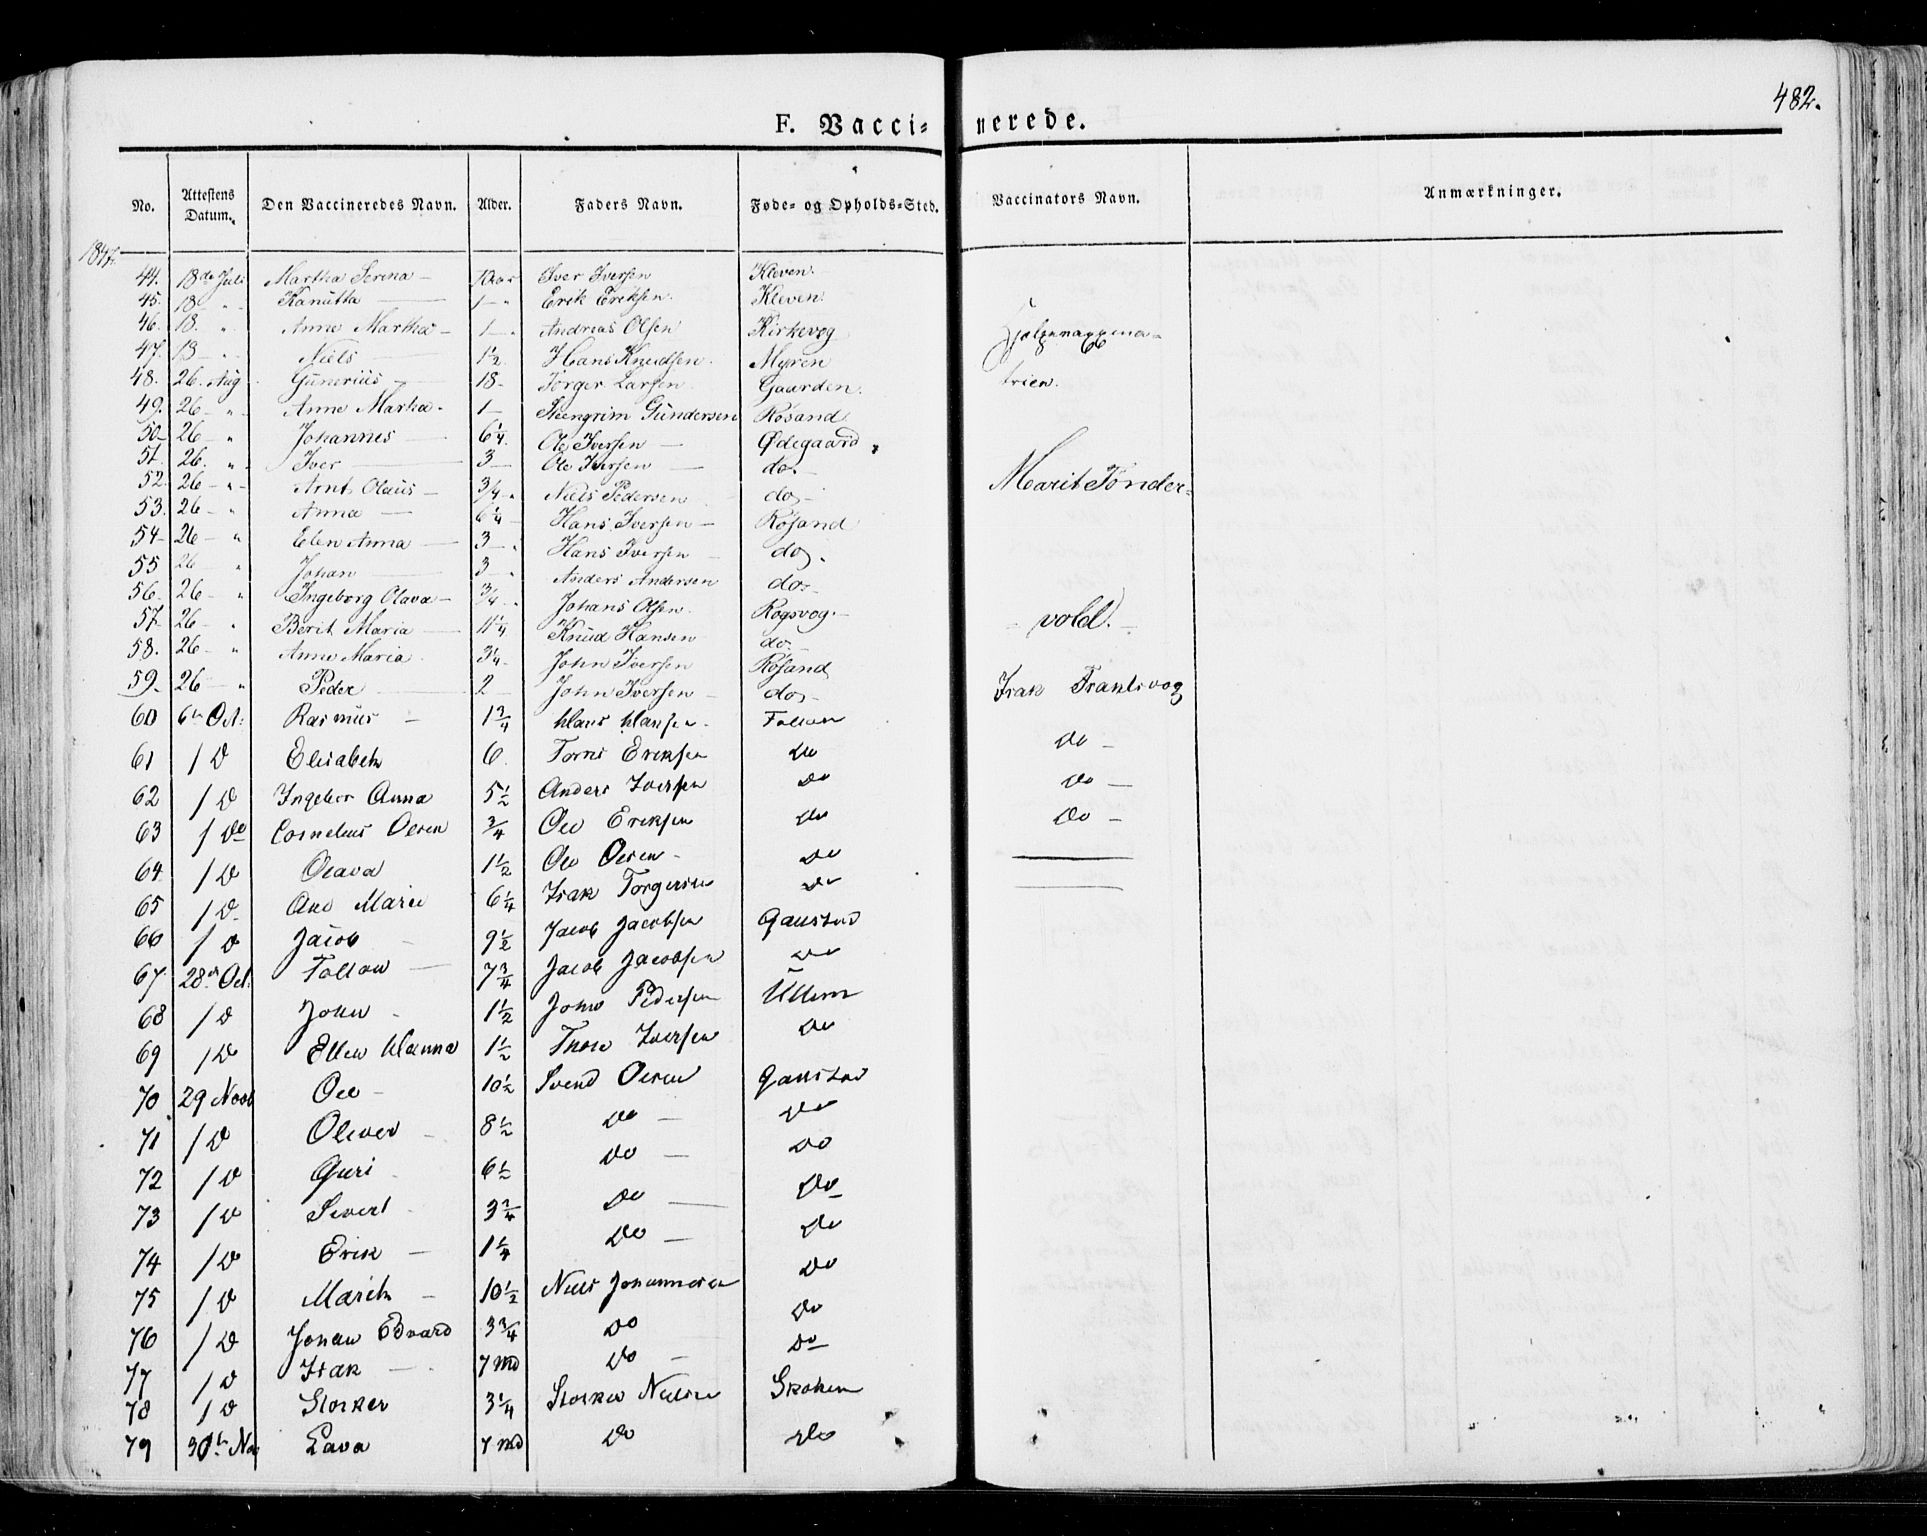 482.
F. Vacci- nerede.
No. Attestens Datum. Den Vaccineredes Navn. Alder. Faders Navn. Føde- og Opholds-Sted. Vaccinators Navn. Anmærkninger.
44. 18de Juli Martha Serina — Iver Iversen Kleven.
45. 18 — " Kanutta — 1 — " Erik Eriksen. Kleven.
46. 18. " Anne Martha — 1 — " Andreas Olsen Kirkevog
47. 18 — " Niels — 1½ Hans Knudsen. Myren
48. 26. Aug. Gunerius — 18 — Torger Larsen. Gaarden. trien.
49. 26 — " Anne Martha. 1 — Steengrim Gundersen Røsand
50. 26 — " Johannes — 6¼. Ole Iversen — Ødegaard
51. 26. " Iver — 3 — Ole Iversen — do. —
52. 26 — " Arnt Olaus — ¾ — Niels Pedersen do — Marit Tønder-
53. 26 — " Anna — 6¼ — Hans Iversen — Røsand
54. 26 — " Elen Anna — 3 — Hans Iversen — do.
55 26 " Johan — 3 — Anders Andersen do.
56. 26 — " Ingeborg Olava — ¾ — Johans Olsen. Rogsvog. — vold. —
57. 26 — " Berit Maria — 11¼ Knud Hansen do. —
58. 26 — " Anne Maria. 3¼ — John Iversen Røsand
59. 26 — " Peder — 2 — John Iversen — do — Isak Frantsvog
60 6te Oct: Rasmus — 1¾ Hans Hansen. Folland do —
61 / D Elisabeth 6. Eriksen Do
62 / D Ingebor Anna 5½ Anders Iversen Do Do —
63 / Do Cornelius Olsen ¾ Ole Eriksen Do Do —
64. / D Olava 1½ Ole Olsen — Do
65 / D. Ane Marie 6¼ Isak Torgersen Do
66 / D Jacob — 9½ Jacob Jacobsen Gaustad
67. 28de Oct. — 7¾ Jacob Jacobsen Do
68 / D John — 1½ John Pedersen Ullern
69 / D Ellen Hanna 1½ Iversen Do
70 29 Novb Ole — 10½ Svend Olsen Gaustad
71 / D Oliver — 8½ Do — Do
72 / D Guri — 6½ Do — Do
73 / D Sivert — 3¾ Do — Do
74 / D Erik — 1¼ Do — Do
75 / D Marith — 10½ Niels Johannesen Do
76 / D Johan Edvard 3¾ Do Do
77 / D Isak — 7 Md Do — Do
78 / D Storker 3¼ Storker Nielsen Skoken
79 30te Nov Lava 7 Md Do Do